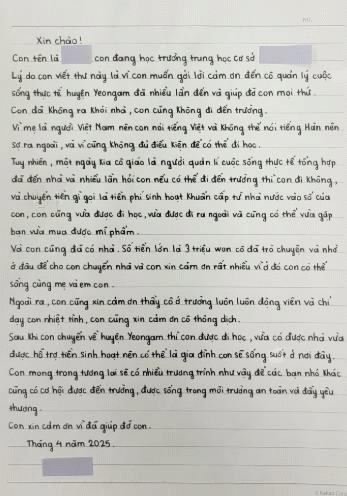 Xin chào!
Con tên là con đang học trường trung học cơ sở
Lý do con viết thư này là vì con muốn gởi lời cảm ơn đến cô quản lý cuộc
sống thực tế huyện Yeongam đã nhiều lần đến và giúp đỡ con mọi thứ.
Con đã không ra khỏi nhà, con cũng không đi đến trường.
Vì mẹ là người Việt Nam nên con nói tiếng Việt và không thể nói tiếng Hàn nên
sợ ra ngoài, và vì cũng không đủ điều kiện để có thể đi học.
Tuy nhiên, một ngày kia cô giáo là người quản lí cuộc sống thực tế tổng hợp
đã đến nhà và nhiều lần hỏi con nếu có thể đi đến trường thì con đi không,
và chuyển tiền gì gọi là tiền phí sinh hoạt khuẩn cấp từ nhà nước vào sổ của
con, con cũng vừa được đi học, vừa được đi ra ngoài và cũng có thể vừa gặp
bạn vừa mua được mĩ phẩm.
Và con cũng đã có nhà. Số tiền lớn là 3 triệu won cô đã trò chuyện và nhờ
ở đâu để cho con chuyển nhà và con xin cảm ơn rất nhiều vì ở đó con có thể
sống cùng mẹ và em con.
Ngoài ra, con cũng xin cảm ơn thầy cô ở trường luôn luôn động viên và chỉ
dạy con nhiệt tình, con cũng xin cảm ơn cô thông dịch.
Sau khi con chuyển về huyện Yeongam thì con được đi học, vừa có được nhà vừa
được hỗ trợ tiền sinh hoạt nên có thể là gia đình con sẽ sống suốt ở nơi đây.
Con mong trong tương lai sẽ có nhiều trương trình như vậy để các bạn nhỏ khác
cũng có cơ hội được đến trường, được sống trong môi trường an toàn và đầy yêu
thương.
Con xin cảm ơn vì đã giúp đỡ con.
Tháng 4 năm 2025.